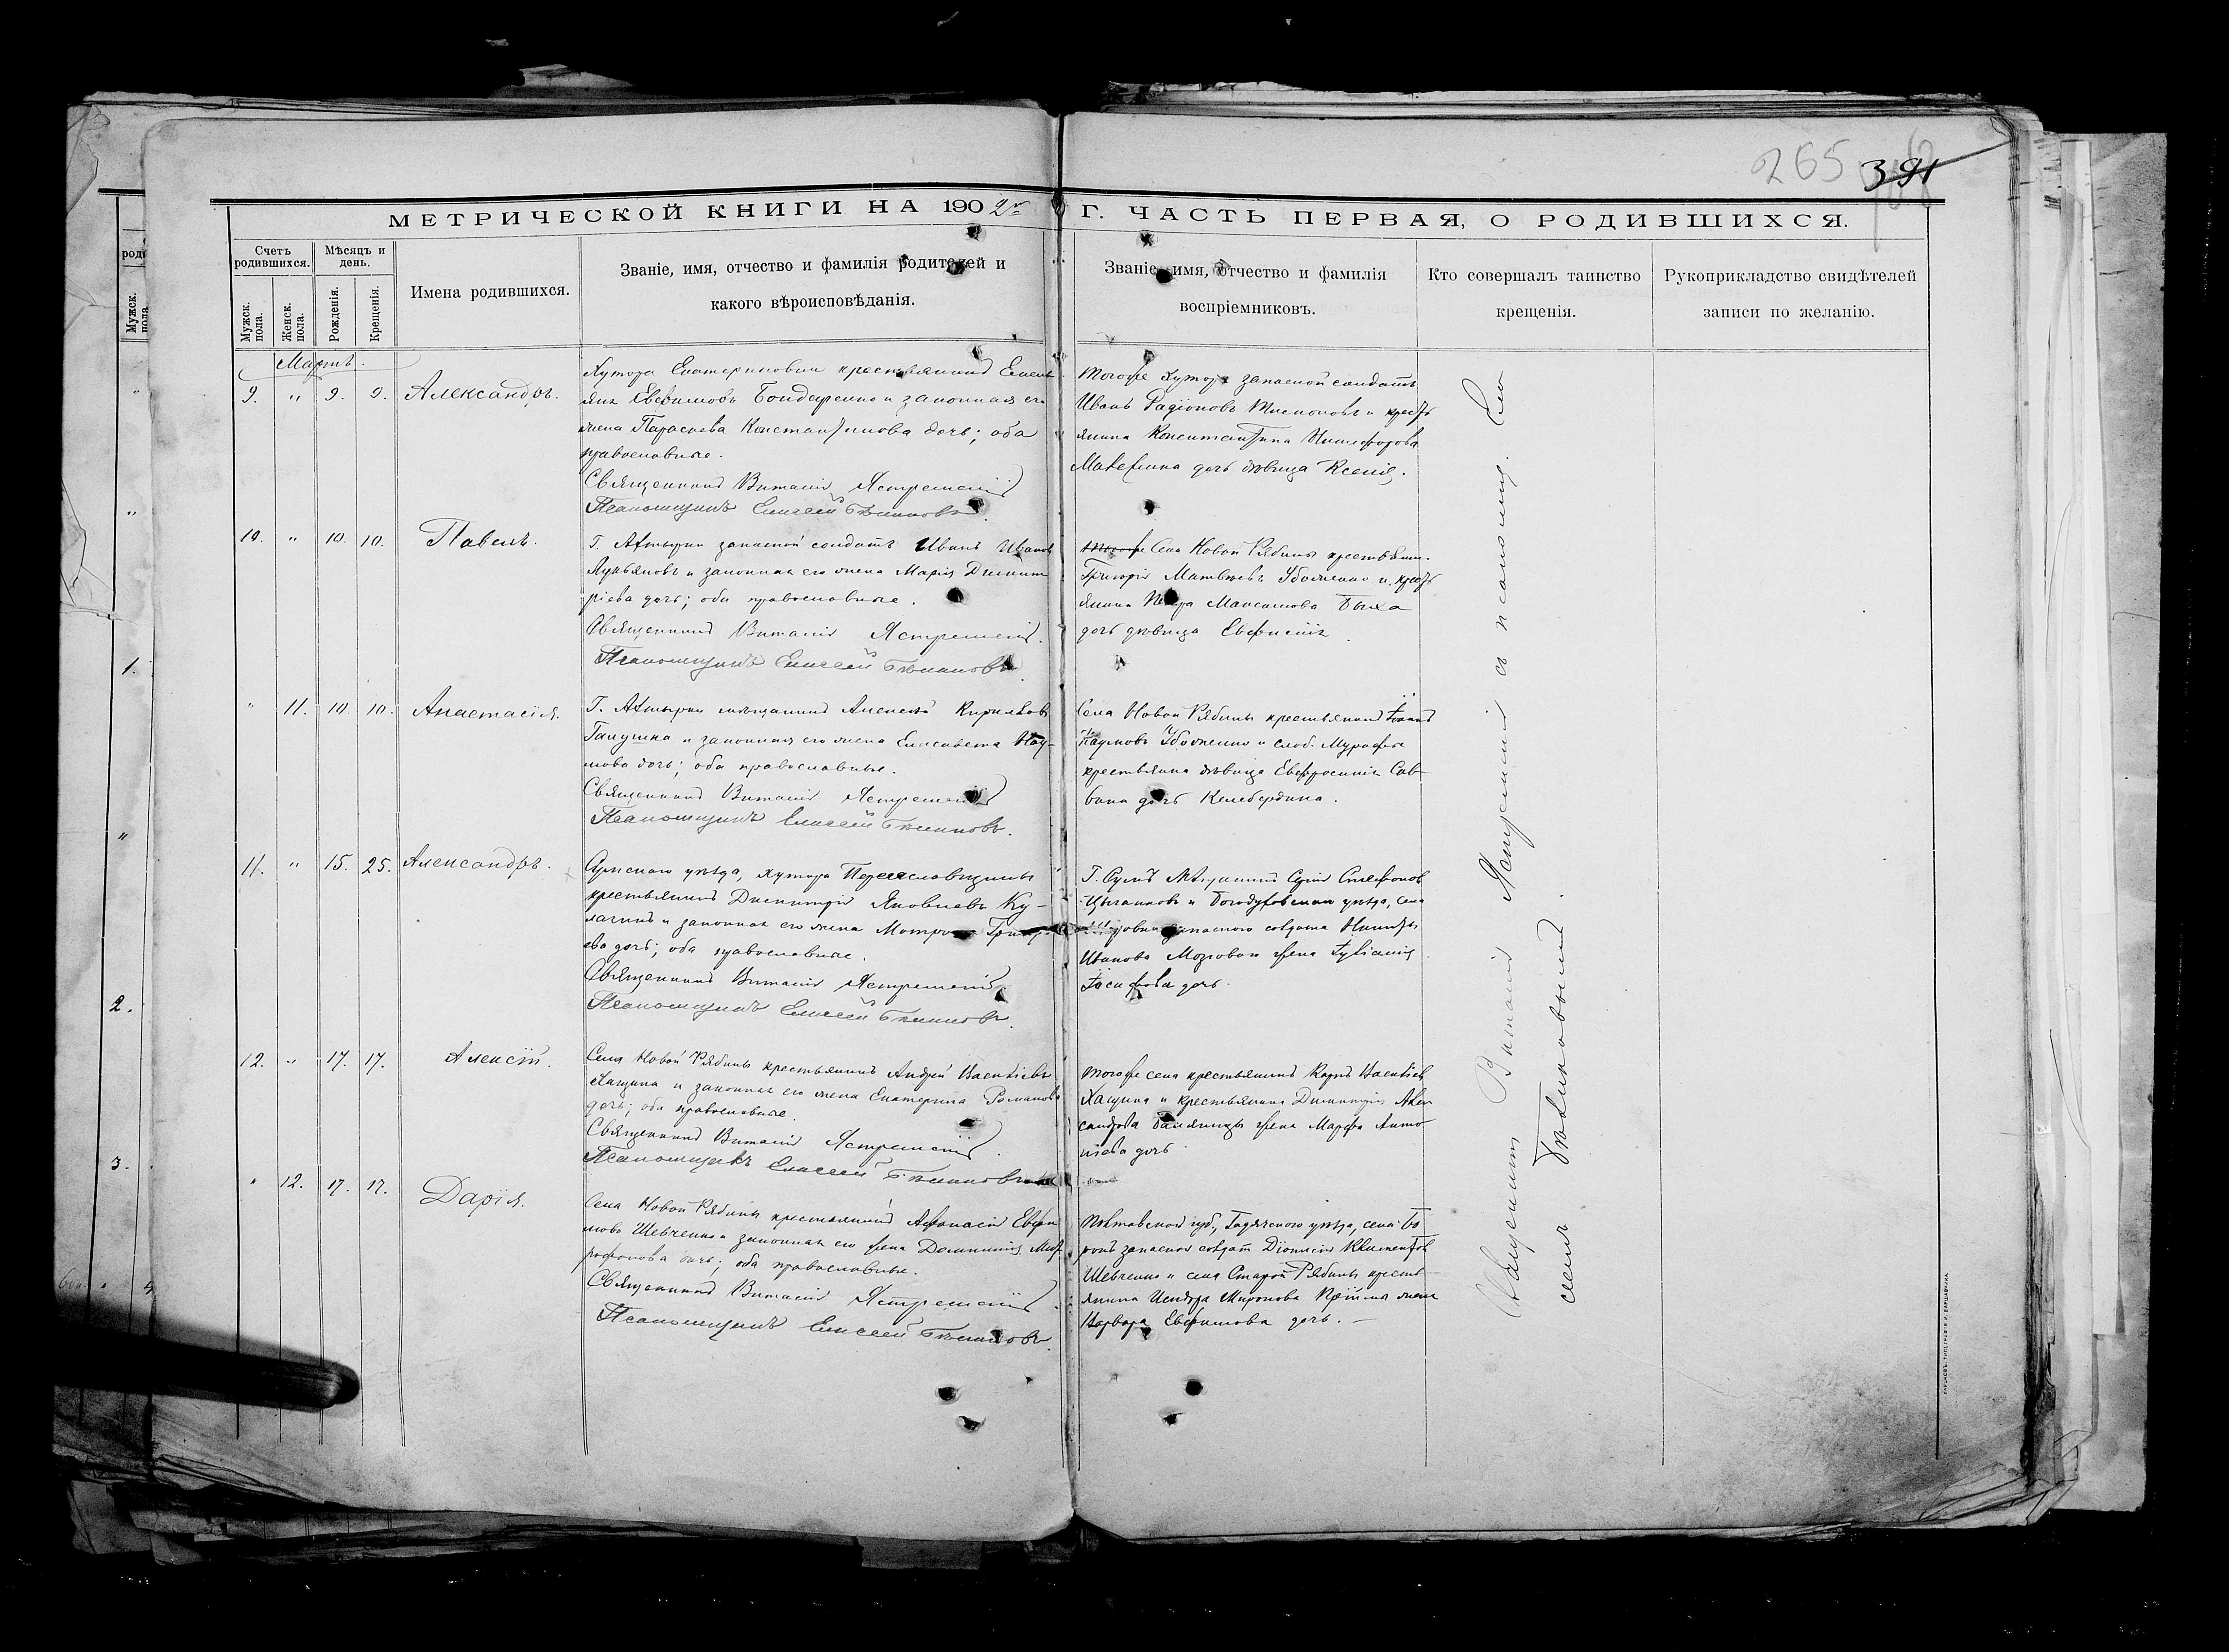 265 391
МЕТРИЧЕСКОЙ КНИГИ НА 1902 Г. ЧАСТЬ ПЕРВАЯ, О РОДИВШИХСЯ.
Счетъ родившихся.
Мужск. пола.
Женск. пола.
Мѣсяцъ и день.
Рожденія.
Крещенія.
Имена родившихся.
Званіе, имя, отчество и фамилія родителей и
какого вѣроисповѣданія.
Званіе, имя, отчество и фамилія
воспріемниковъ.
Кто совершалъ таинство
крещенія.
Рукоприкладство свидѣтелей
записи по желанію.
Мартъ.
9. " 9. 9. Александръ.
Хутора Екатериновки крестьянинъ Емель
янъ Евѳимовъ Бондаренко и законная его
жена Параскева Константинова дочь; оба
православные.
Священникъ Виталій Ястремскій
Псаломщикъ Елисей
Тогоже хутора запасной солдатъ
Иванъ Радіоновъ и крестъ
янина Константина Никифорова
дочь дѣвица Ксенія.
10. " 10. 10. Павелъ.
Г. Ахтырки запасной солдатъ Иванъ Ивановъ
Лукьяновъ и законная его жена Марія Димит
ріева дочь; оба православные.
Священникъ Виталій Ястремскій.
Псаломщикъ Елисей
Села Новой Рябины крестьянин.
Григорій Матвѣевъ Убоженко и крестъ
янина Петра Максимова Быха
дочь дѣвица Евфимія.
" 11. 10. 10. Анастасія.
Г. Ахтырки мѣщанинъ Алексѣй Кирилловъ
Галушка и законная его жена Елисавета Нау-
мова дочь; оба православные.
Священникъ Виталій Ястремскій
Псаломщикъ Елисей
Села Новой Рябины крестьянинъ Іоаннъ
Наумовъ Убоженко и слоб. Мурафы
крестьянка дѣвица Евфросинія Сав-
вина дочь Келебердина.
11. " 15. 25. Александръ.
Сумскаго уѣзда, хутора
крестьянинъ Димитрій Яковлевъ Ку-
лагинъ и законная его жена Матрона Григорі
ева дочь; оба православные.
Священникъ Виталій Ястремскій
Псаломщикъ Елисей
Г. Сумъ Мѣщанинъ Сергій Стефановъ
Цыганковъ и Богодуховскаго уѣзда, села
запаснаго солдата Никиты
Иванова жена Іуліанія
Іосифова дочь.
12. " 17. 17. Алексій.
Села Новой Рябины крестьянинъ Андрей Василіевъ
Хащина и законная его жена Екатерина Романова
дочь; оба православные.
Священникъ Виталій Ястремскій.
Псаломщикъ Елисей
Тогоже села крестьянинъ Карпъ Василіев
Хащина и крестьянина Димитрія Алек
сандрова жена Марфа Анто
ніева дочь
" 12. 17. 17. Дарія.
Села Новой Рябины крестьянинъ Афанасій Евфи
мовъ Шевченко и законная его жена Домникія Мит
рофанова дочь; оба православные.
Священникъ Виталій Ястремскій.
Псаломщикъ Елисей
Полтавской губ., Гадячскаго уѣзда, села Бо
ронъ запасной солдатъ Діонисій Климентов
Шевченко и села Старой Рябины кресть-
янина Исидора Миронова жена
Варвара Евфимова дочь. —
Священникъ Виталій Ястремскій съ псаломщ. Ели
сеемъ
1.
2.
3.